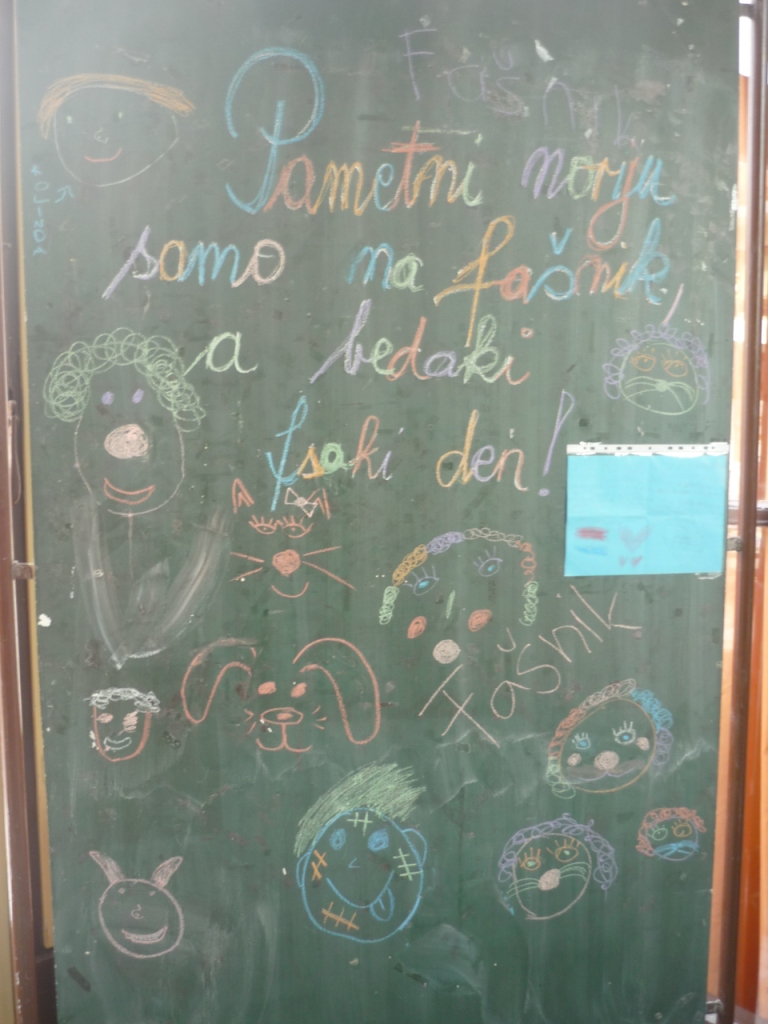 Fašnik
Pametni noriju
samo na fašnik,
a bedaki
fsaki den!
Fašnik